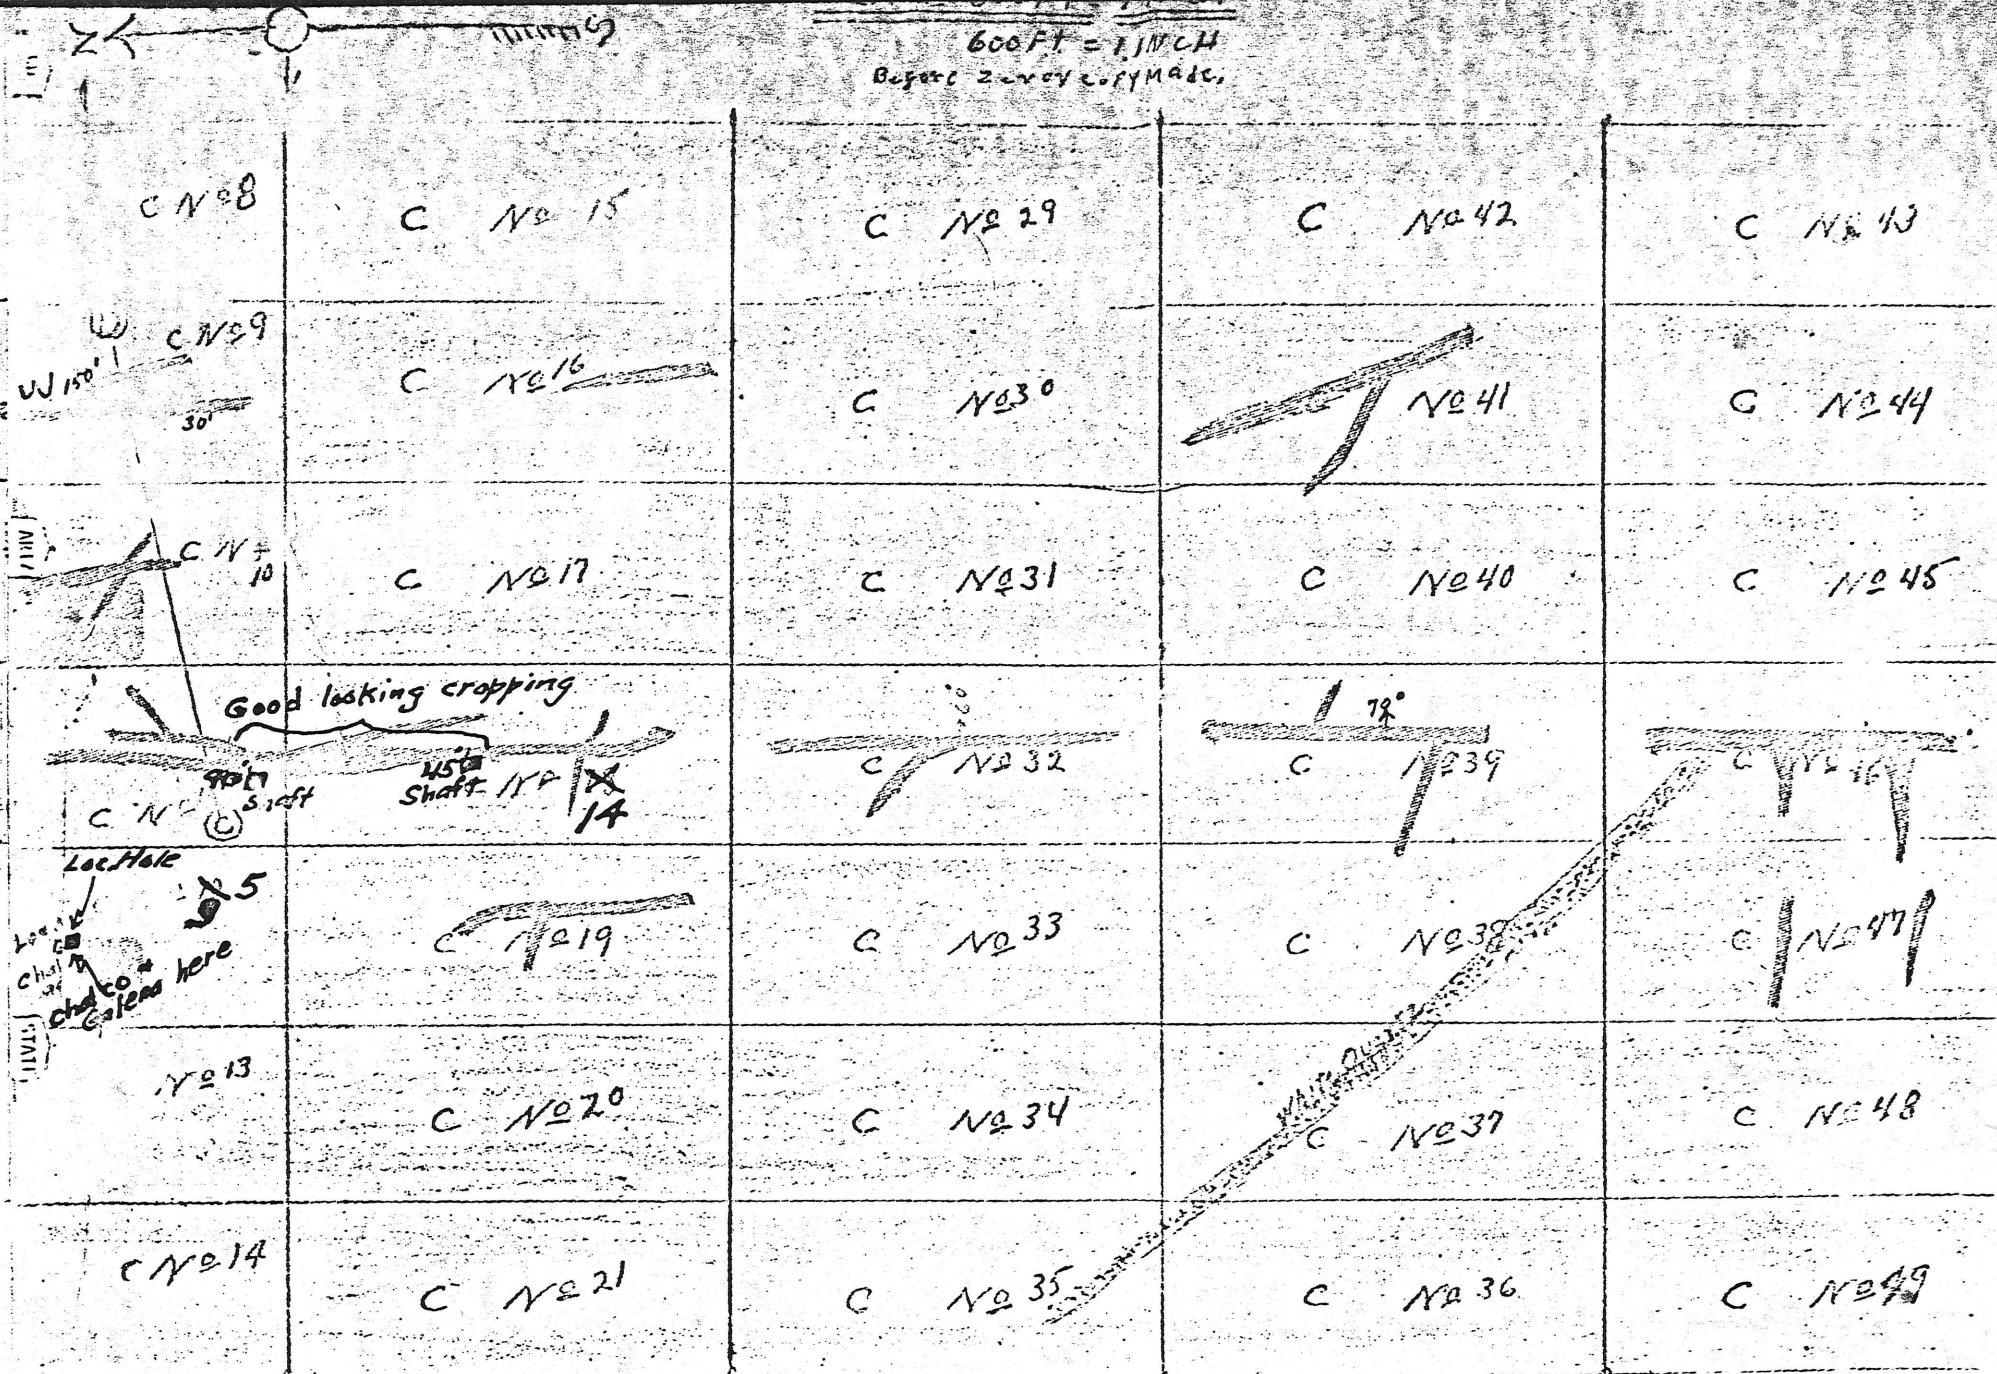 N S
600 Ft = 1 INCH
Before copy Made.
C Nº 8
C Nº 15
C Nº 29
C Nº 42
C Nº 43
C Nº 9
150'
30'
C Nº 16
C Nº 30
Nº 41
C Nº 44
C Nº
10
C Nº 17
C Nº 31
C Nº 40
C Nº 45
Good looking cropping
90'
Shaft
45'
Shaft
Nº
14
C Nº
C
C Nº 32
78°
C Nº 39
C Nº 46
Loc. Hole
5
Chalco +
Galena here
C Nº 19
C Nº 33
C Nº 38
C Nº 47
Nº 13
C Nº 20
C Nº 34
C Nº 37
C Nº 48
C Nº 14
C Nº 21
C Nº 35
C Nº 36
C Nº 49